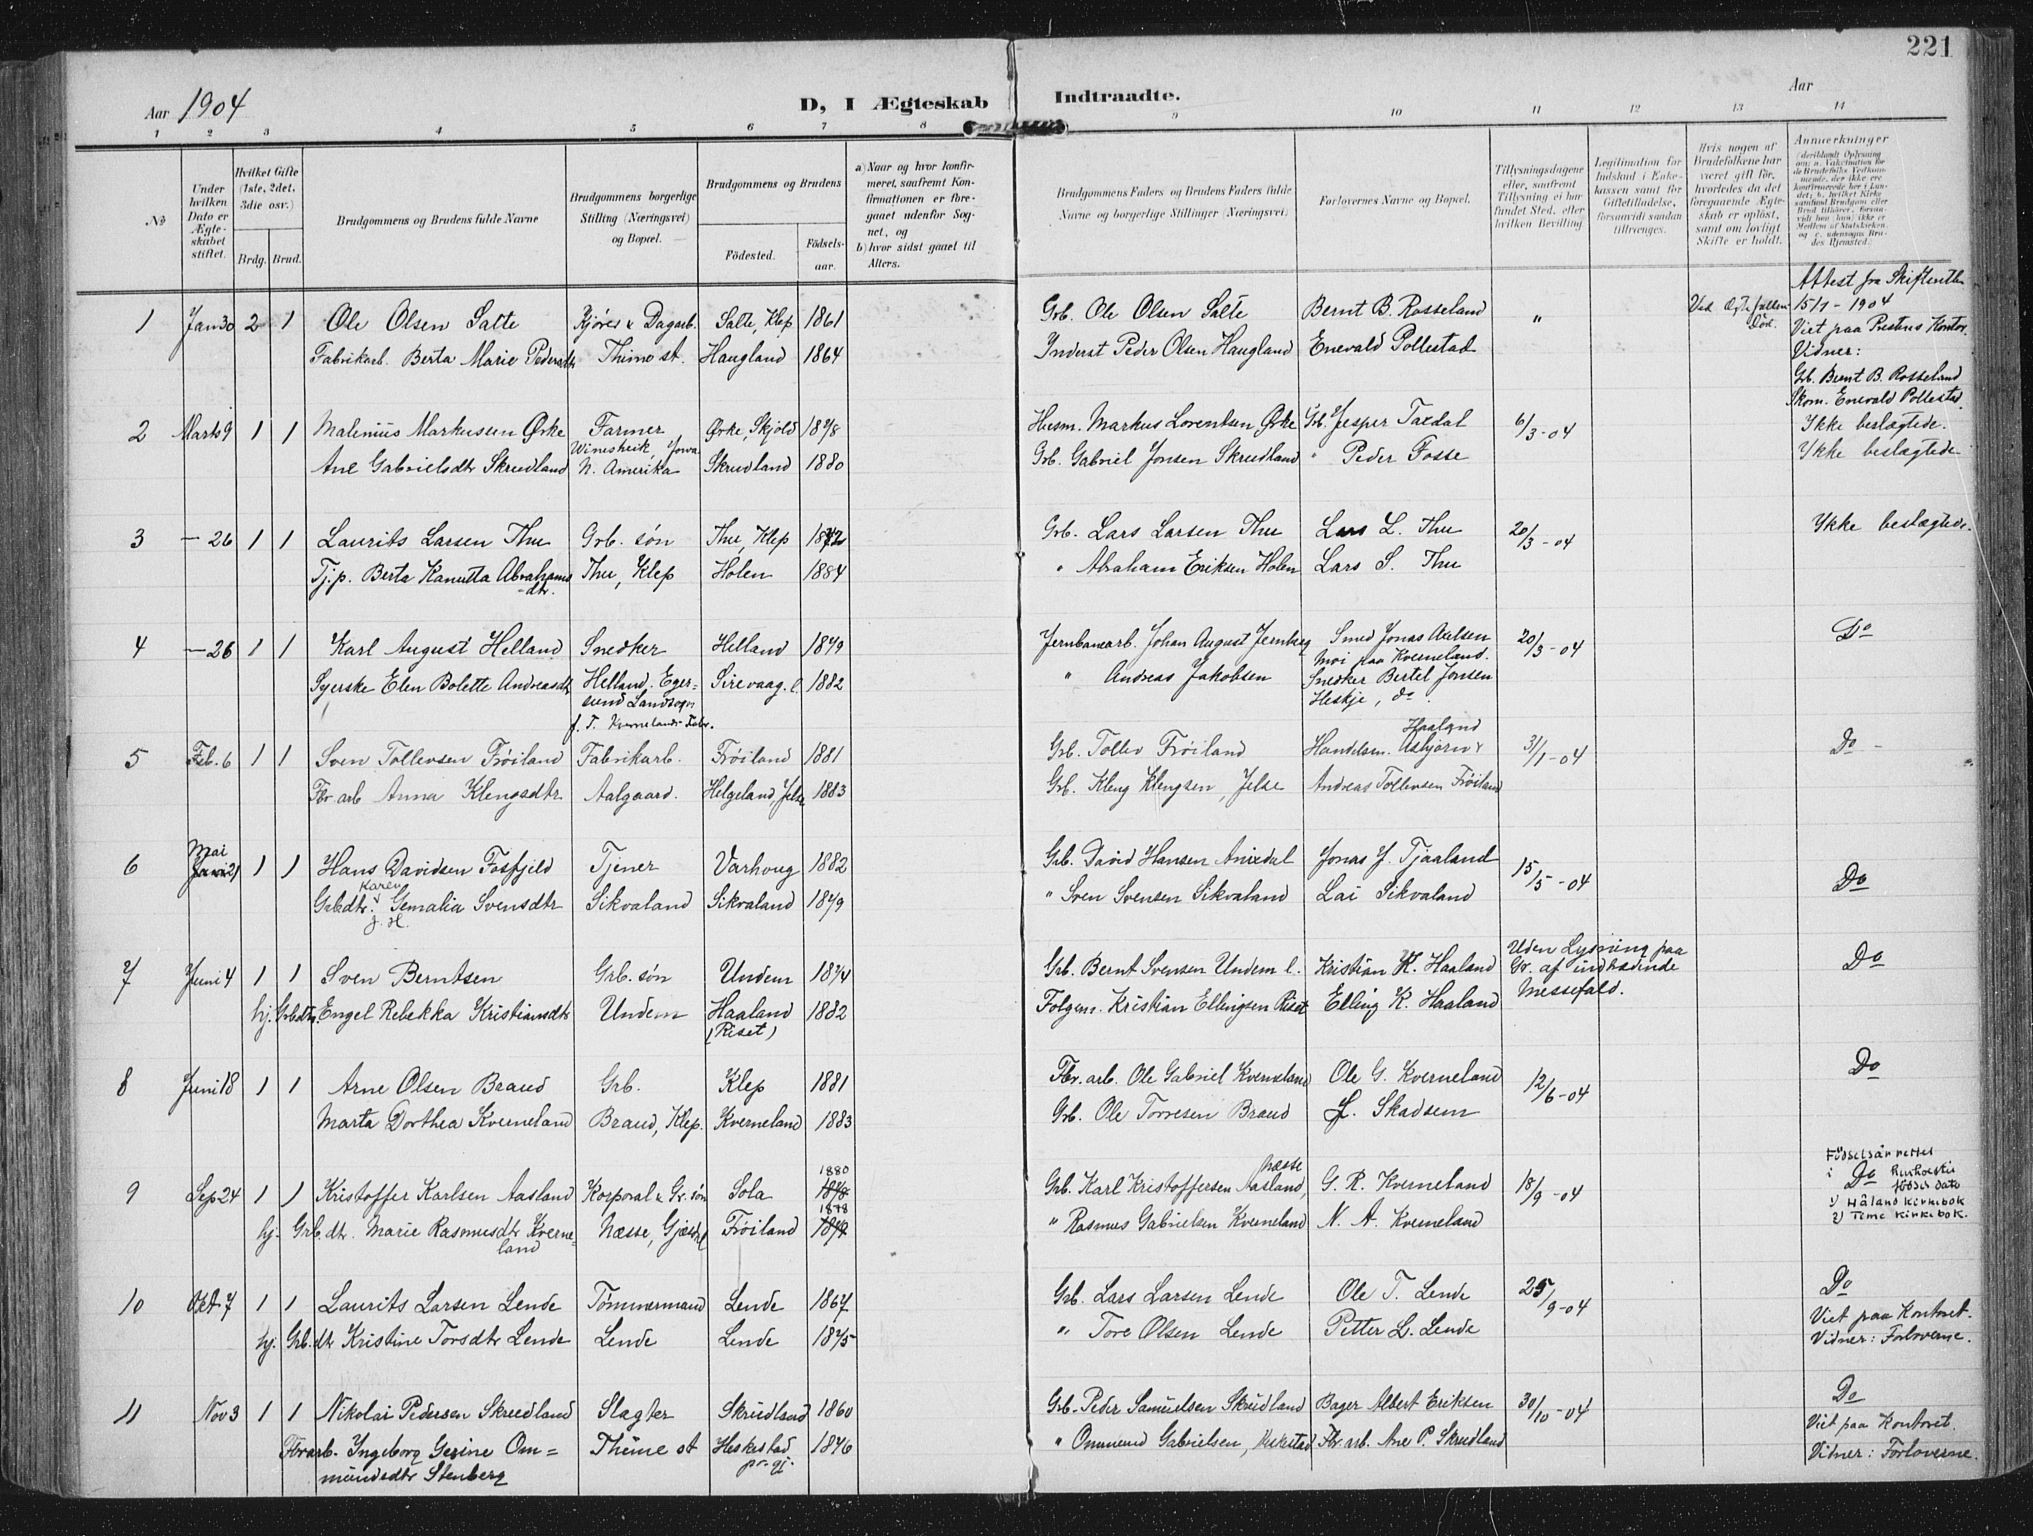 221
Aar 1904
D, I Ægteskab Indtraadte.
Aar
1 2 3 4 5 6 7 8 9 10 11 12 13 14
No
Under hvilken Dato er Ægteskabet stiftet.
Hvilket Gifte (1ste, 2det, 3die osv.)
Brdg. Brud.
Brudgommens og Brudens fulde Navne
Brudgommens borgerlige Stilling (Næringsvei) og Bopæl.
Brudgommens og Brudens
Födested. Födselsaar.
a) Naar og hvor konfirmeret, saafremt Konfirmationen er foregaaet udenfor Sognet, og
b) hvor sidst gaaet til Alters.
Brudgommens Faders og Brudens Faders fulde Navne og borgerlige Stillinger (Næringsvei)
Forlovernes Navne og Bopæl.
Tillysningsdagene eller, saafremt Tillysning ei har fundet Sted, efter hvilken Bevilling
Legitimation for Indskud i Enkekassen samt for Giftetilladelse, forsaavidt saadan tiltrænges.
Hvis nogen af Brudefolkene har været gift för, hvorledes da det foregaaende Ægteskab er oplöst, samt om lovligt Skifte er holdt.
Anmærkninger
1 Jan 30 2 1 Ole Olsen Salte Kjører & Dagarb. Salte, Klep 1861 Grb. Ole Olsen Salte Bernt B. Rosseland "
Fabrikarb. Berta Marie Pedersdtr Thime st. Haugland 1864 Inderst Peder Olsen Haugland Enevald Pollestad
Attest fra Skifteretten
15/1 - 1904
Viet paa Prestens Kontor.
Vidner:
Grb. Bernt B. Rosseland
Skom. Enevald Pollestad.
2 Marts 9 1 1 Malenius Markusen Ørke Farmer Ørke, Skjold 1878 Husm. Markus Lorentsen Ørke Grb. Jesper Taxdal 6/3-04 Ikke beslægtede.
Ane Gabrielsdtr Skrudland N. Amerika Skrudland 1880 Grb. Gabriel Jonsen Skrudland " Peder Fosse Ikke beslægtede
3 — 26 1 1 Laurits Larsen Thu Grb. søn Thu, Klep Grb. Lars Larsen Thu Lars L. Thu 20/3-04 Ikke beslægtede.
Tj.p. Berta Kanutta Abrahamsdtr. Thu, Klep Holen 1884 " Abraham Eriksen Holen Lars S. Thu
4 — 26 1 1 Karl August Helland Snedker Helland 1879 Jernbanearb. Johan August Jernberg Smed Jonas Aulsen 20/3-04 Do
Moi paa Kverneland.
Syerske Elen Bolette Andreasdtr Helland, Egersund Landsogn Sirevaag. l. 1882 " Andreas Jakobsen Snedker Bertel Jonsen
Heskje, do.
5 Feb. 6 1 1 Sven Tollevsen Frøiland Fabrikarb. Frøiland 1881 Grb. Tollev Frøiland Handelsm. Asbjørn Haaland & 31/1-04 Do -
Fbr. arb Anna Klengsdtr Aalgaard. Helgeland, Jelse 1883 Grb. Kleng Klengsen, Jelse Andreas Tollevsen Frøiland
6 Mai 21 1 1 Hans Davidsen Fosfjeld Tjener Varhoug 1882 Grb. David Hansen Anisdal Jonas J. Tjaaland 15/5-04 Do
Grbdtr. Karen Gemalia Svensdtr Sikvaland Sikvaland 1879 " Sven Svensen Sikvaland Lai Sikvaland
7 Juni 4 1 1 Sven Berntsen Grb. søn Undem 1874 Grb. Bernt Svensen Undem l. Kristian K. Haaland Uden Lysning paa Gr. af indtrædende Messefald. Do
hj. Grbdtr. Engel Rebekka Kristiansdtr Undem Haaland (Riset) 1882 Folgem. Kristian Ellingsen Riset Elling K. Haaland
8 Juni 18 1 1 Arne Olsen Braud Grb. Klep 1881 Fbr. arb. Ole Gabriel Kverneland Ole G. Kverneland 12/6-04 Do
Marta Dorthea Kverneland Braud, Klep. Kverneland 1883 Grb. Ole Torresen Braud J. Skadsem
9 Sep 24 1 1 Kristoffer Karlsen Aasland Korporal & Gr. søn Sola 1880 1878 Grb. Karl Kristoffersen Aasland, Næsse G. R. Kverneland 18/9-04 Do
hj. Grb. dtr. Marie Rasmusdtr Kverneland Næsse, Gjæsdal Frøiland 1878 1874 " Rasmus Gabrielsen Kverneland N. A. Kverneland
Födselsår rettet
1) Håland kirkebok
2) Time kirkebok.
10 Okt 7 1 1 Laurits Larsen Lende Tømmermand Lende 1867 Grb. Lars Larsen Lende Ole T. Lende 25/9-04 Do
hj. Grb. dtr Kristine Torsdtr Lende Lende Lende 1875 " Tore Olsen Lende Petter L. Lende
Viet paa Kontoret.
Vidner: Forloverne.
11 Nov 3 1 1 Nikolai Pedersen Skrudland Slagter Skrudland 1860 Grb. Peder Samuelsen Skrudland Bager Albert Eriksen 30/10-04 Do
Fbrarb. Ingeborg Gesine Ommundsdtr Stenberg Thime st Heskestad pr. gj. 1876 " Ommund Gabrielsen, Heskestad Fbr. arb. Ane P. Skrudland
Viet paa Kontoret.
Vidner: Forloverne.